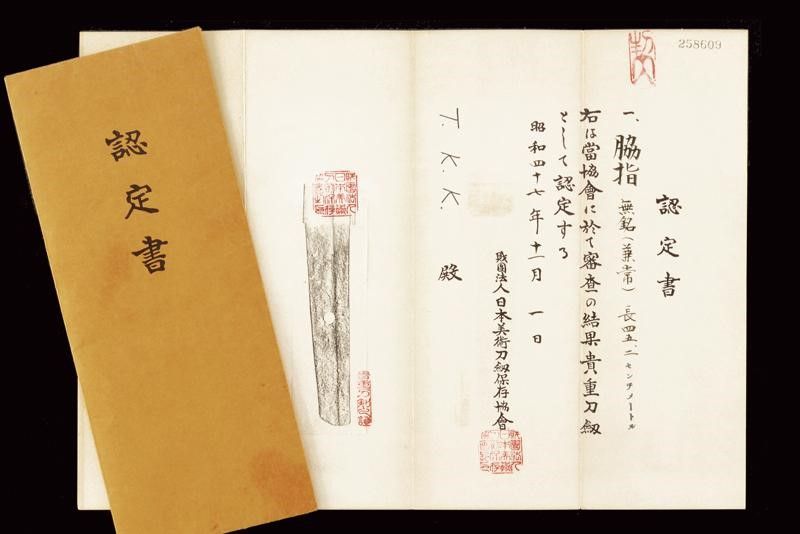 258609
認定書
一、脇指 無銘(兼常) 長四五、二センチメートル
右は當協會に於て審査の結果貴重刀劔
として認定する
昭和四十七年十一月一日
財團法人日本美術刀劔保存協會
T. K. K. 殿
認定書